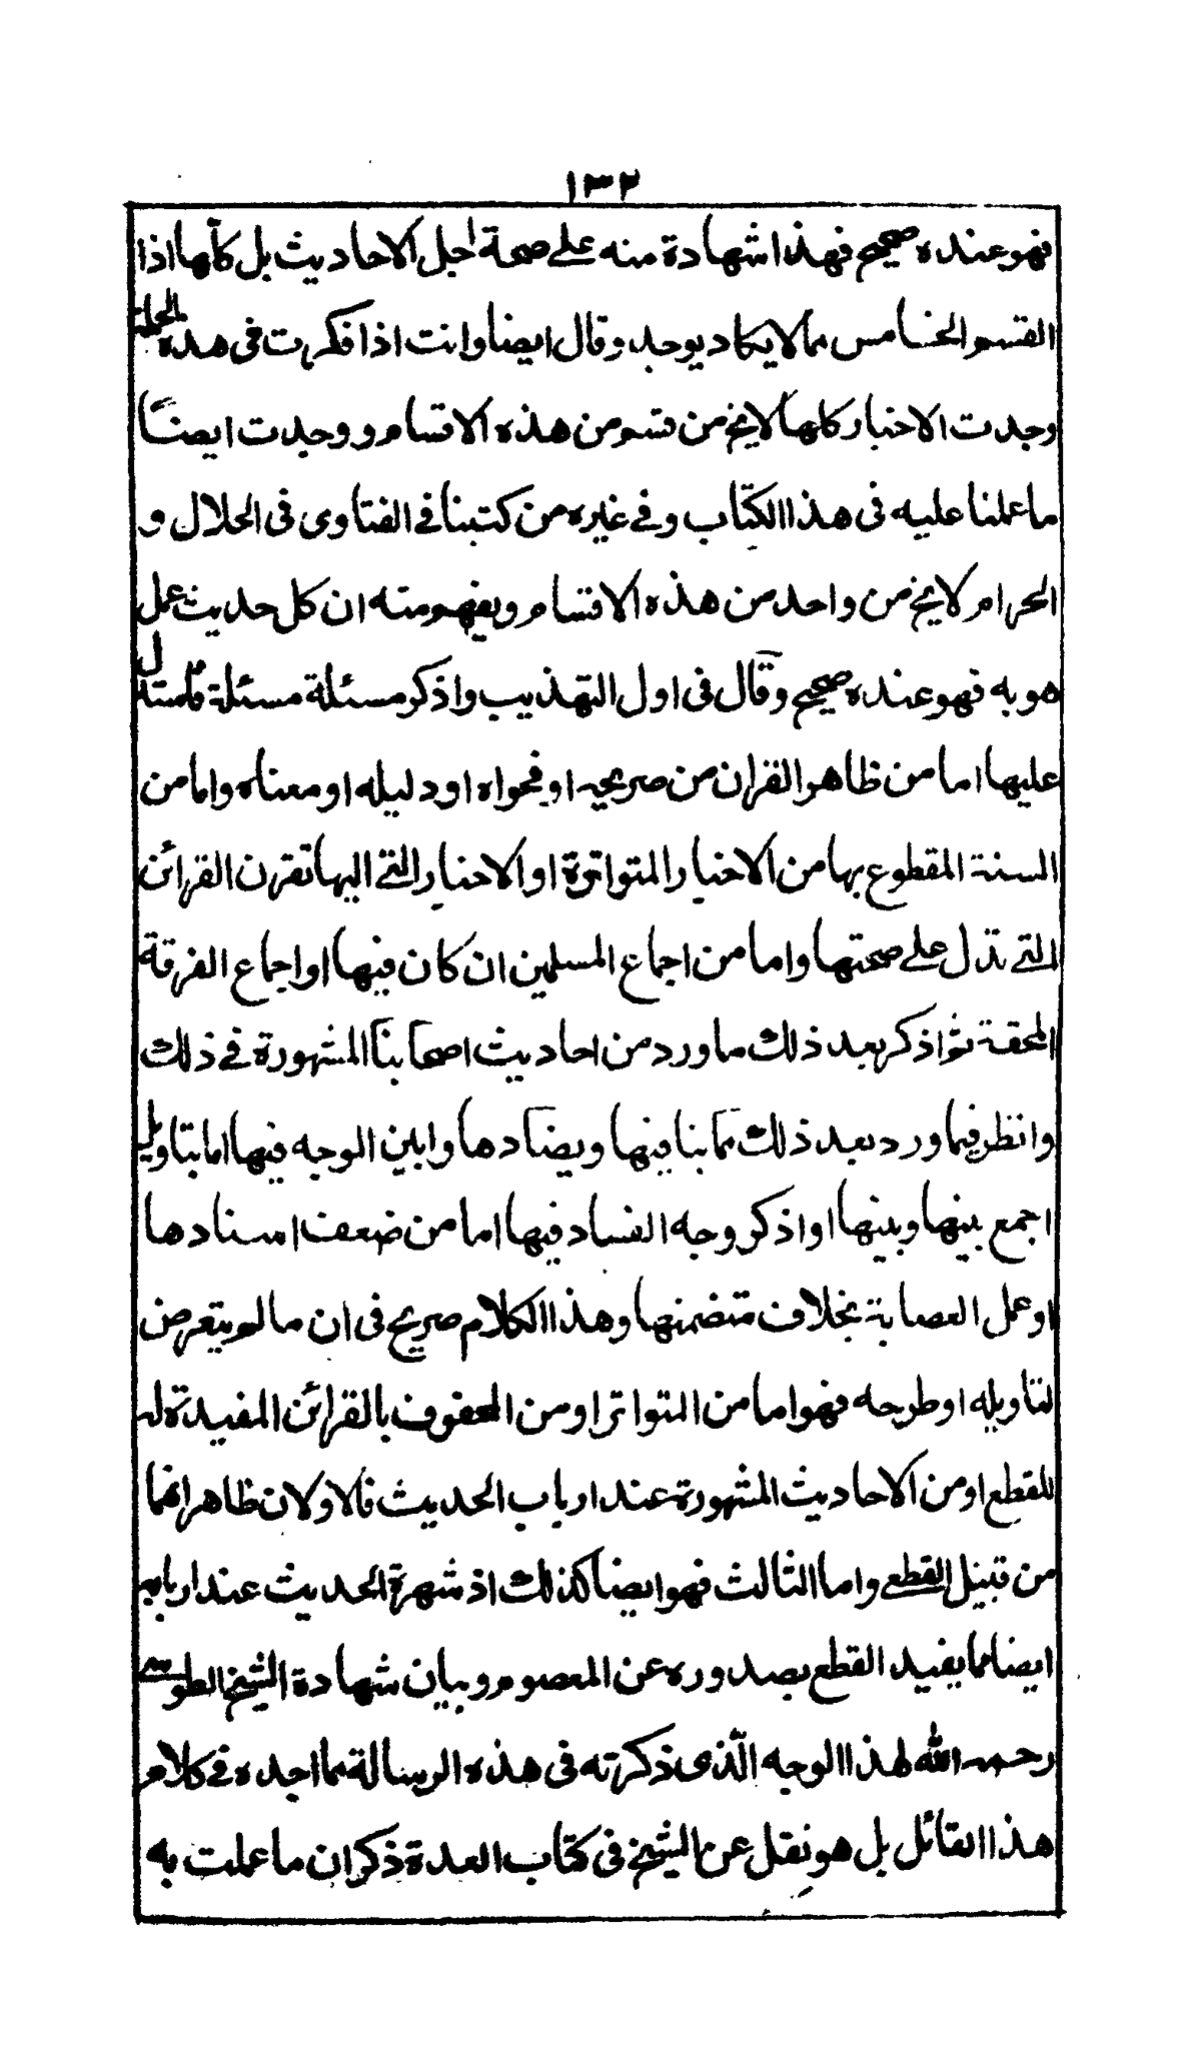 ١٣٢
فهو عنده صحيح فهذا شهادة منه على صحة اجل الاحاديث بل كلها اذا
القسم الخامس مما لا يكاد يوجد وقال ايضا وانت اذا فكرت فى هذه الجملة
وجدت الاخبار كلها لا يخ من قسم من هذه الاقسام ووجدت ايضًا
ما عملنا عليه فى هذا الكتاب وفى غيره من كتبنا فى الفتاوى فى الحلال و
الحرام لا يخ من واحد من هذه الاقسام ويفهم منه ان كل حديث عمل
هو به فهو عنده صحيح وقال فى اول التهذيب واذكر مسئلة مسئلة فاستدل
عليها اما من ظاهر القران من صريحه او فحواه او دليله او معناه واما من
السنة المقطوع بها من الاخبار المتواترة او الاخبار التى اليها تقرن القرائن
التى تدل على صحتها واما من اجماع المسلمين ان كان فيها او اجماع الفرقة
المحقة ثم اذكر بعد ذلك ما ورد من احاديث اصحابنا المشهورة فى ذلك
وانظر فيما ورد بعد ذلك مما ينافيها ويضادها وابين الوجه فيها اما بتاويل
اجمع بينها وبينها او اذكر وجه الفساد فيها اما من ضعف اسنادها
او عمل العصابة بخلاف متضمنها وهذا الكلام صريح فى ان ما لم يتعرض
لتاويله او طرحه فهو اما من المتواتر او من المحفوف بالقرائن المفيدة له
للقطع او من الاحاديث المشهورة عند ارباب الحديث فالاولان ظاهر انهما
من قبيل القطعى واما الثالث فهو ايضا كذلك اذ شهرة الحديث عند اربابه
ايضا مما يفيد القطع بصدوره عن المعصوم وبيان شهادة الشيخ الطوسى
رحمه الله لهذا الوجه الّذى ذكرته فى هذه الرسالة مما اجده فى كلام
هذا القائل بل هو نقل عن الشيخ فى كتاب العدة ذكر ان ما عملت به